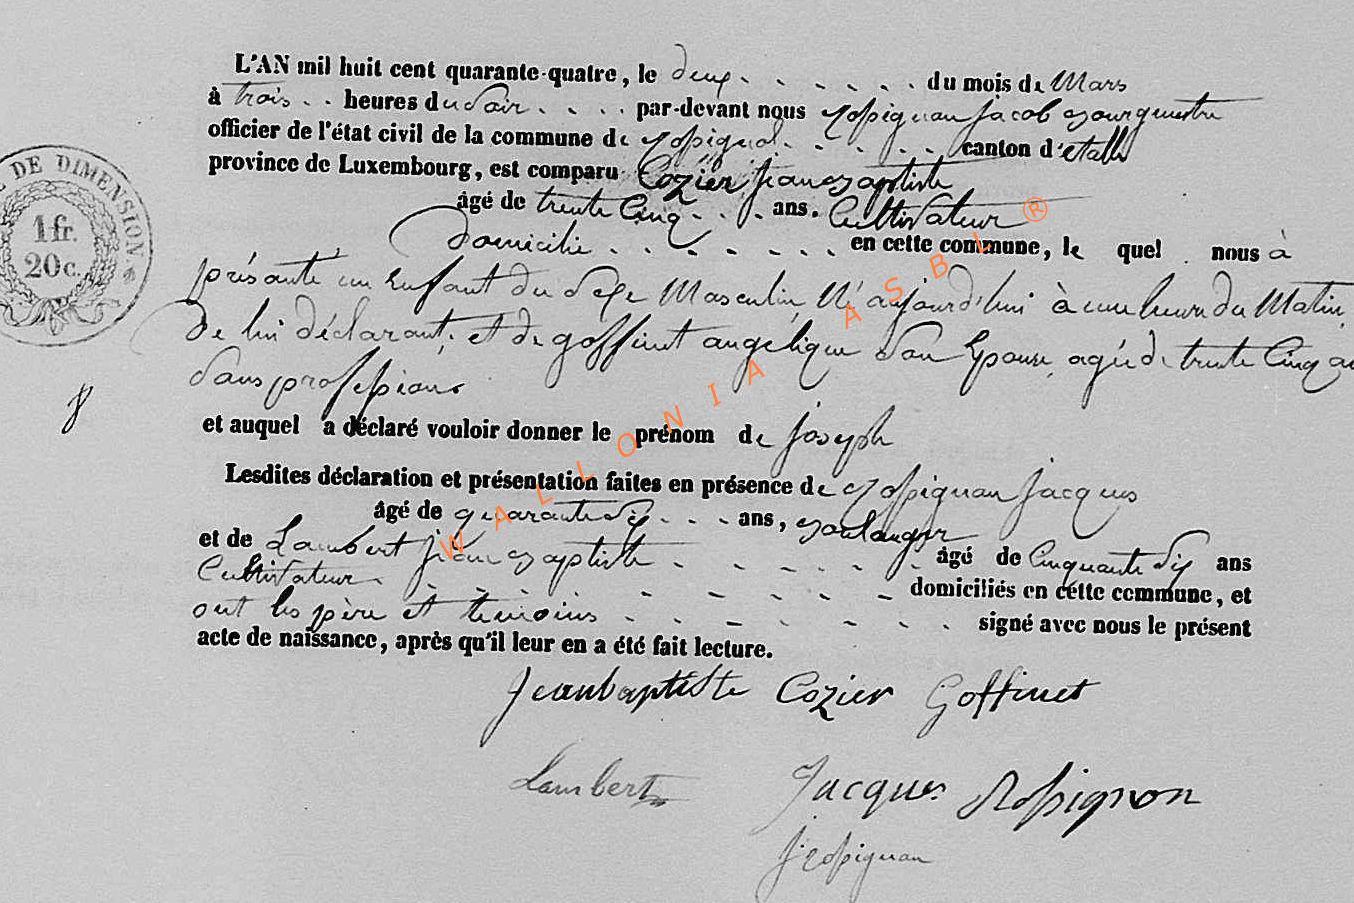 L'AN mil huit cent quarante-quatre, le deux du mois de Mars
à trois heures du soir par-devant nous Rossignon Jacob Bourguestre
officier de l'état civil de la commune de Rossignol canton d'étalle
province de Luxembourg, est comparu Cozier jean Baptiste
âgé de trente Cinq ans. Cultivateur
domicilié en cette commune, le quel nous à
présanté un Enfant du Sexe Masculin, Né aujourd'hui à une heure du Matin,
De lui déclarant, et de goffinet angélique Son Epouse, agée de trente Cinq an
Sans profession
et auquel a déclaré vouloir donner le prénom de joseph
Lesdites déclaration et présentation faites en présence de Rossignon jacques
âgé de quarante dix ans, Boulanger
et de Lambert jean Baptiste âgé de Cinquante dix ans
Cultivateur domiciliés en cette commune, et
ont les père et temoins signé avec nous le présent
acte de naissance, après qu'il leur en a été fait lecture.
Jeanbaptiste Cozier Goffinet
Lambert Jacques Rossignon
J Rossignon
DE DIMENSION
1 fr.
20 c.
8
WALLONIA ASBL ®